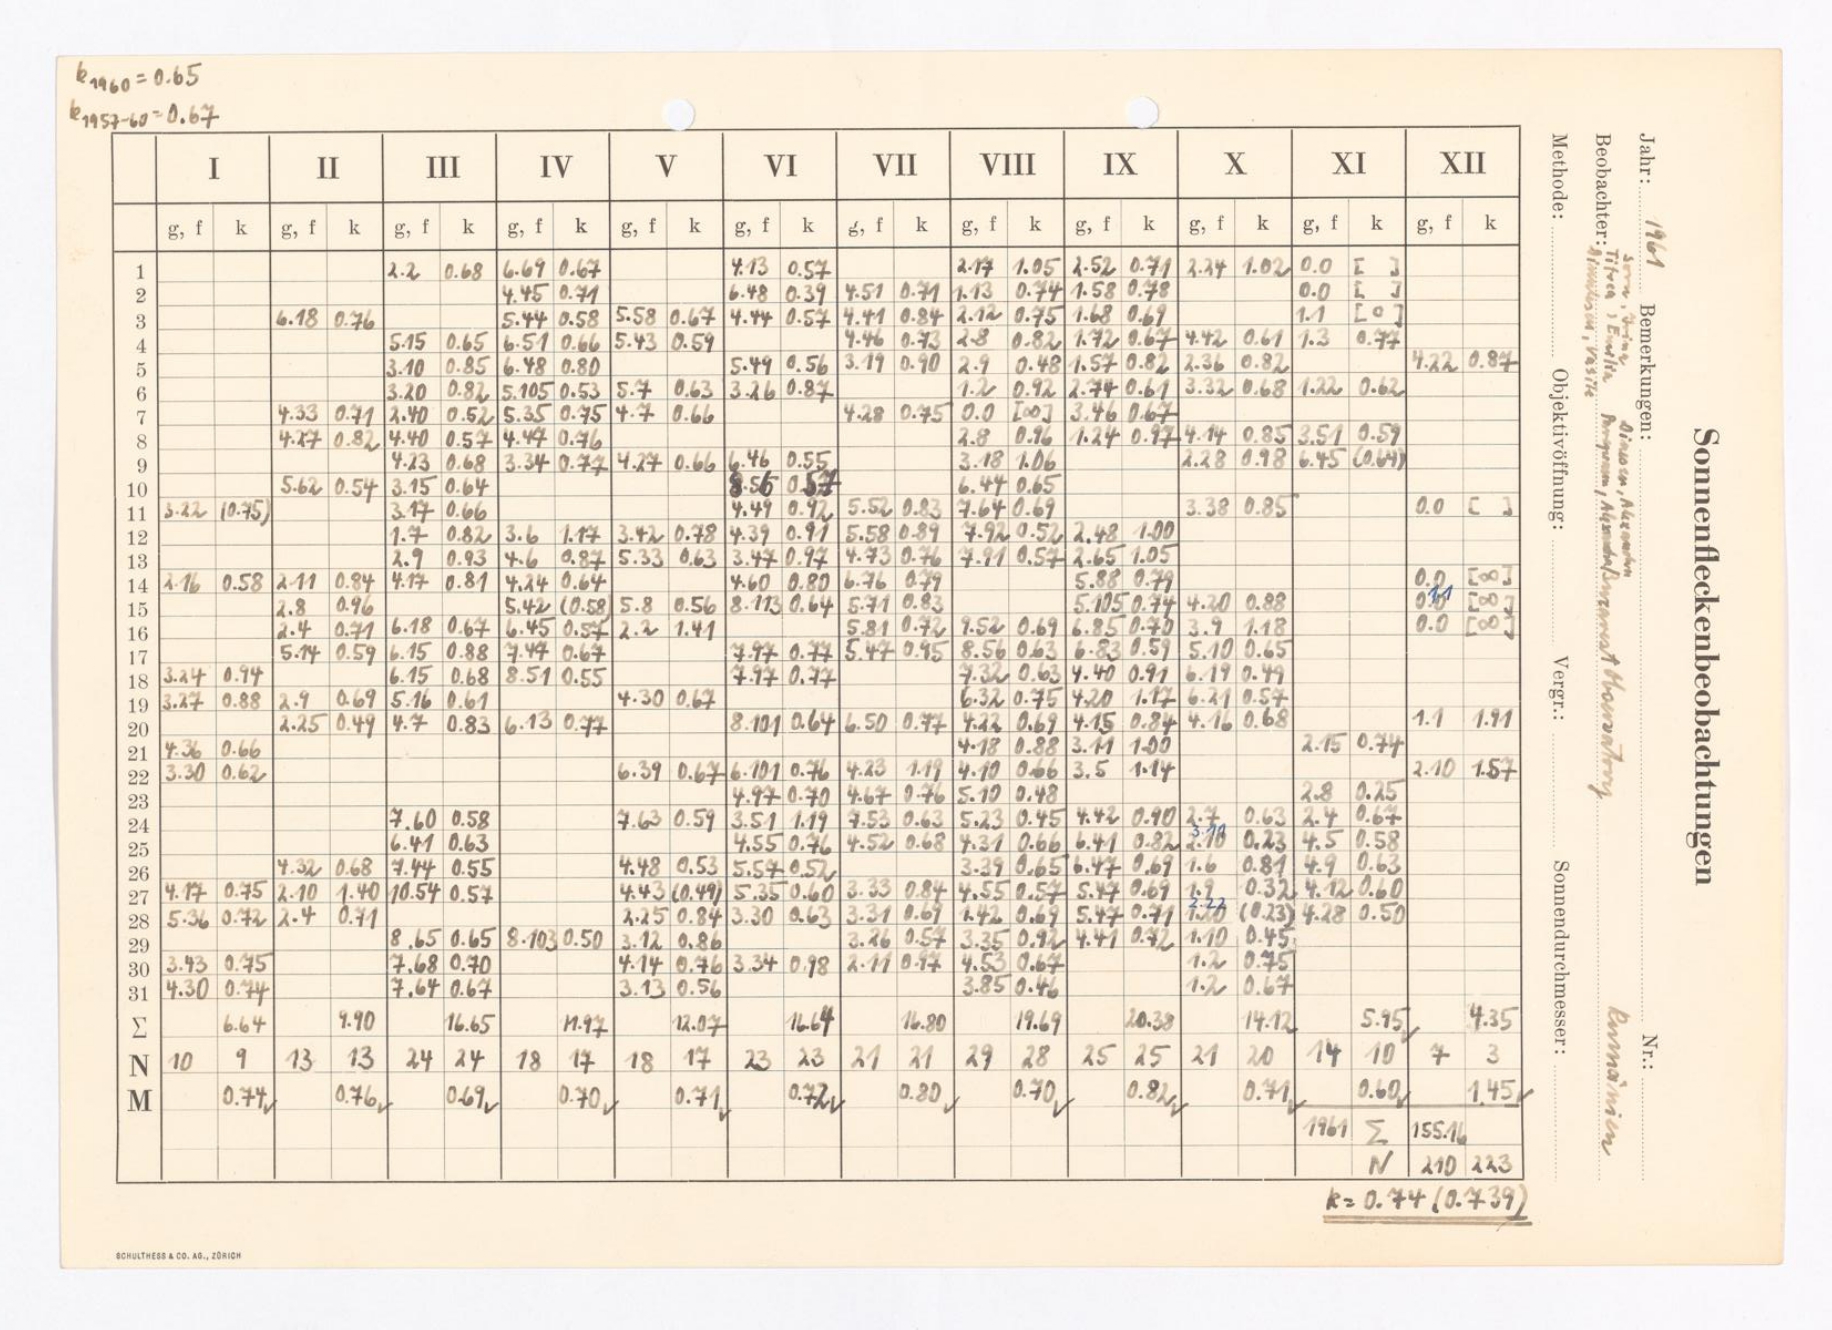 k1960 = 0.65
k1957-60 = 0.67
Sonnenfleckenbeobachtungen
Jahr: 1961 Bemerkungen: Nr.:
Beobachter: Rumänien
Methode: Objektivöffnung: Vergr.: Sonnendurchmesser:
I II III IV V VI VII VIII IX X XI XII
g, f k g, f k g, f k g, f k g, f k g, f k g, f k g, f k g, f k g, f k g, f k g, f k
1 2.2 0.68 6.69 0.67 4.13 0.57 2.17 1.05 2.52 0.71 2.24 1.02 0.0 [ ]
2 4.45 0.71 6.48 0.39 4.51 0.71 1.13 0.74 1.58 0.78 0.0 [ ]
3 6.18 0.76 5.44 0.58 5.58 0.67 4.44 0.57 4.41 0.84 2.12 0.75 1.68 0.69 1.1 [0]
4 5.15 0.65 6.51 0.66 5.43 0.59 4.46 0.73 2.8 0.82 1.72 0.67 4.42 0.61 1.3 0.77
5 3.10 0.85 6.48 0.80 5.49 0.56 3.19 0.90 2.9 0.48 1.57 0.82 2.36 0.82 4.22 0.87
6 3.20 0.82 5.105 0.53 5.7 0.63 3.26 0.87 1.2 0.92 2.74 0.61 3.32 0.68 1.22 0.62
7 4.33 0.71 2.40 0.52 5.35 0.75 4.7 0.66 4.28 0.75 0.0 [∞] 3.46 0.67
8 4.27 0.82 4.40 0.57 4.47 0.76 2.8 0.96 1.24 0.97 4.14 0.85 3.51 0.59
9 4.23 0.68 3.34 0.77 4.27 0.66 6.46 0.55 3.18 1.06 2.28 0.98 6.45 (0.64)
10 5.62 0.54 3.15 0.64 8.56 0.57 6.44 0.65
11 3.22 (0.75) 3.17 0.66 4.49 0.92 5.52 0.83 7.64 0.69 3.38 0.85 0.0 [ ]
12 1.7 0.82 3.6 1.17 3.42 0.78 4.39 0.91 5.58 0.89 7.92 0.52 2.48 1.00
13 2.9 0.93 4.6 0.87 5.33 0.63 3.47 0.97 4.73 0.76 7.91 0.57 2.65 1.05
14 2.16 0.58 2.11 0.84 4.17 0.81 4.24 0.64 4.60 0.80 6.76 0.79 5.88 0.79 0.0 [∞]
15 2.8 0.96 5.42 (0.58) 5.8 0.56 8.113 0.64 5.71 0.83 5.105 0.74 4.20 0.88 0.0 1.1 [∞]
16 2.4 0.71 6.18 0.67 6.45 0.57 2.2 1.41 5.81 0.72 9.52 0.69 6.85 0.70 3.9 1.18 0.0 [∞]
17 5.14 0.59 6.15 0.88 7.47 0.67 7.97 0.77 5.47 0.95 8.56 0.63 6.83 0.59 5.10 0.65
18 3.24 0.94 6.15 0.68 8.51 0.55 7.97 0.77 7.32 0.63 4.40 0.91 6.19 0.49
19 3.27 0.88 2.9 0.69 5.16 0.61 4.30 0.67 6.32 0.75 4.20 1.17 6.21 0.57
20 2.25 0.49 4.7 0.83 6.13 0.77 8.101 0.64 6.50 0.77 4.22 0.69 4.15 0.84 4.16 0.68 1.1 1.91
21 4.36 0.66 4.18 0.88 3.11 1.00 2.15 0.74
22 3.30 0.62 6.39 0.67 6.101 0.76 4.23 1.19 4.10 0.66 3.5 1.14 2.10 1.57
23 4.97 0.70 4.67 0.76 5.10 0.48 2.8 0.25
24 7.60 0.58 7.63 0.59 3.51 1.19 7.53 0.63 5.23 0.45 4.42 0.90 2.7 0.63 2.4 0.67
25 6.41 0.63 4.55 0.76 4.52 0.68 4.31 0.66 6.41 0.82 3.10 2.10 0.23 4.5 0.58
26 4.32 0.68 7.44 0.55 4.48 0.53 5.57 0.52 3.39 0.65 6.47 0.69 1.6 0.81 4.9 0.63
27 4.17 0.75 2.10 1.40 10.54 0.57 4.43 (0.49) 5.35 0.60 3.33 0.84 4.55 0.57 5.47 0.69 1.9 0.32 4.12 0.60
28 5.36 0.72 2.4 0.71 2.25 0.84 3.30 0.63 3.31 0.69 1.42 0.69 5.47 0.71 2.22 1.20 (0.23) 4.28 0.50
29 8.65 0.65 8.103 0.50 3.12 0.86 3.26 0.57 3.35 0.92 4.41 0.72 1.10 0.45
30 3.43 0.75 7.68 0.70 4.14 0.76 3.34 0.98 2.11 0.97 4.53 0.67 1.2 0.75
31 4.30 0.74 7.64 0.67 3.13 0.56 3.85 0.46 1.2 0.67
Σ 6.64 9.90 16.65 11.97 12.07 16.64 16.80 19.69 20.38 14.12 5.95 4.35
N 10 9 13 13 24 24 18 17 18 17 23 23 21 21 29 28 25 25 21 20 14 10 7 3
M 0.74 0.76 0.69 0.70 0.71 0.72 0.80 0.70 0.82 0.71 0.60 1.45
1961 Σ 155.16
N 210 223
k = 0.74 (0.739)
SCHULTHESS & CO. AG., ZÜRICH